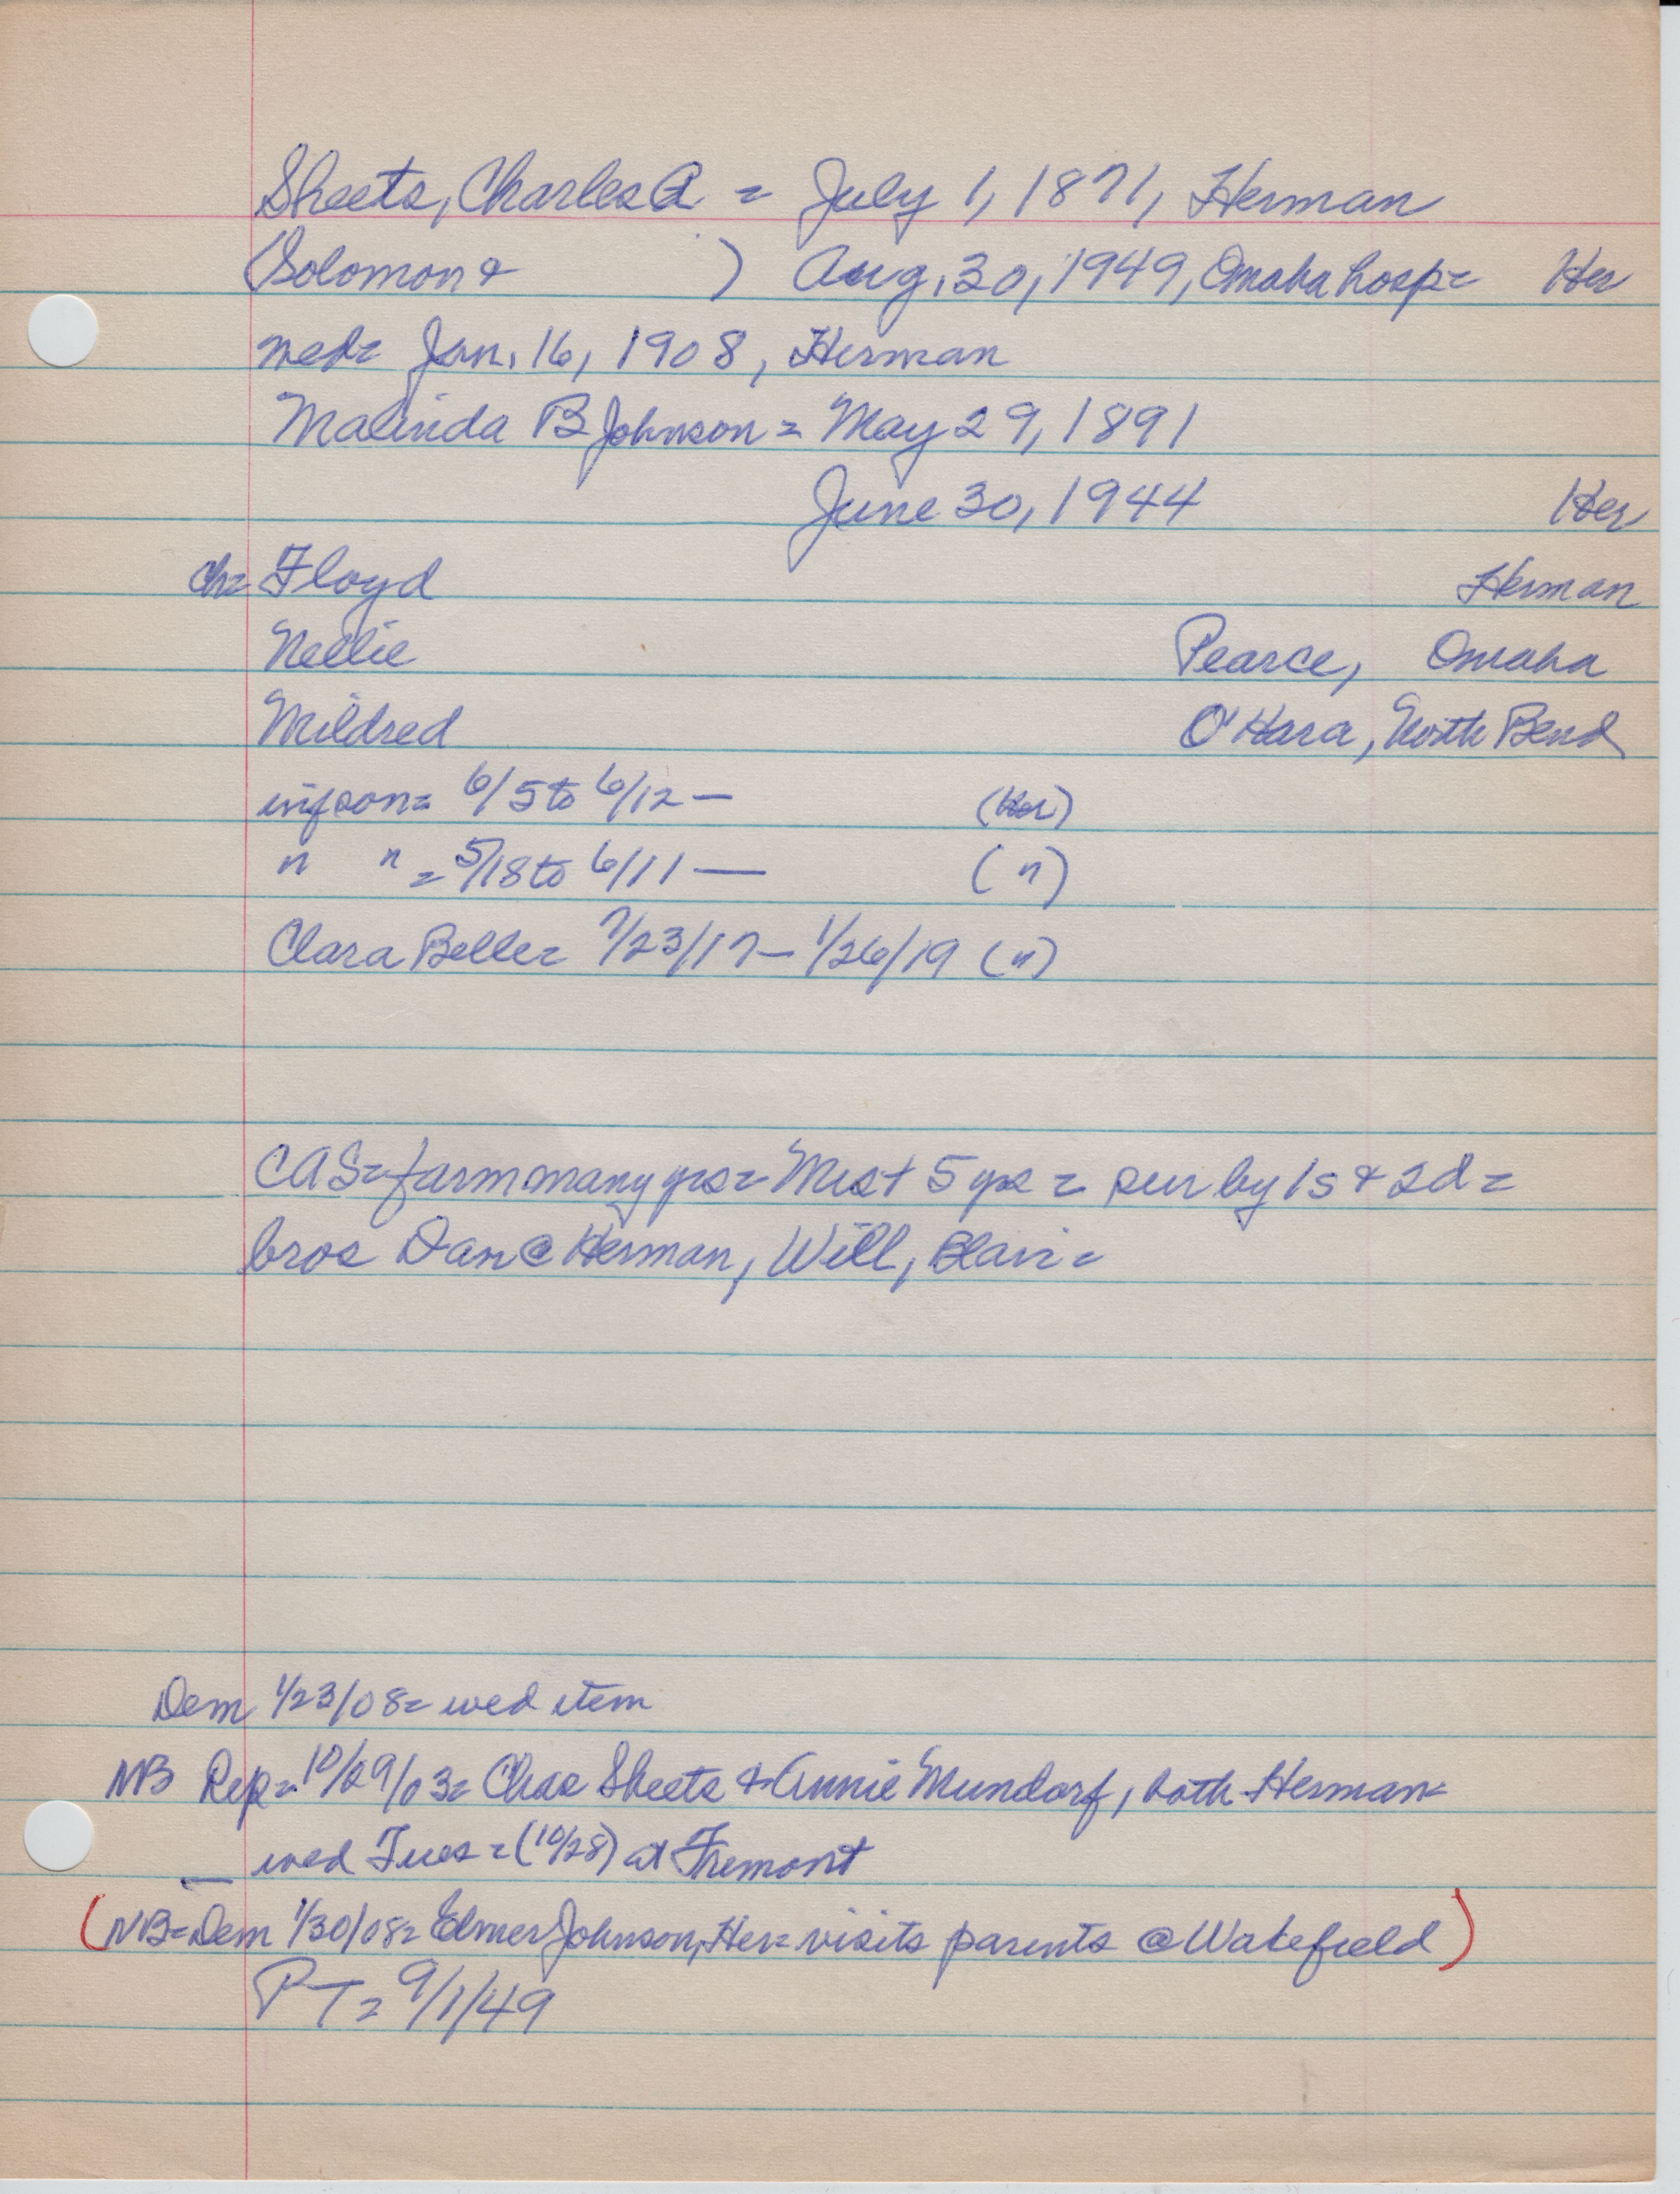 Sheets, Charles A = July 1, 1871, Herman
(Solomon & ) Aug. 30, 1949, Omaha hosp = Her
wed = Jan. 16, 1908, Herman
Malinda B Johnson = May 29, 1891
June 30, 1944 Her
ch = Floyd Herman
Nellie Pearce, Omaha
Mildred O'Hara, North Bend
inf son = 6/5 to 6/12 — (Her)
" " = 5/18 to 6/11 — (")
Clara Belle = 7/23/17 — 1/26/19 (")
CAS = farm many yrs = 5 yrs = sur by 1s & 2d =
bros Dan @ Herman, Will, Blair =
Dem 1/23/08 = wed item
NB Rep = 10/29/03 = Chas Sheets & Annie Mundorf, both Herman =
wed Tues = (10/28) at Fremont
(NB = Dem 1/30/08 = Elmer Johnson, Her = visits parents @ Wakefield)
PT = 9/1/49